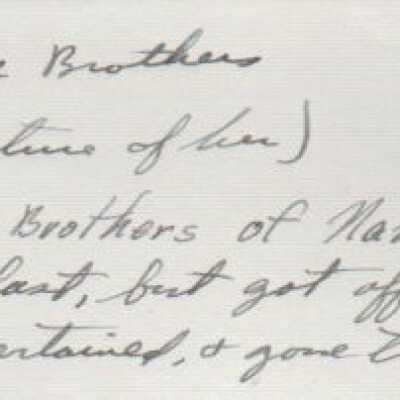 Brothers
of her)
Brothers of Nan
last, but got off
ertained, & gone